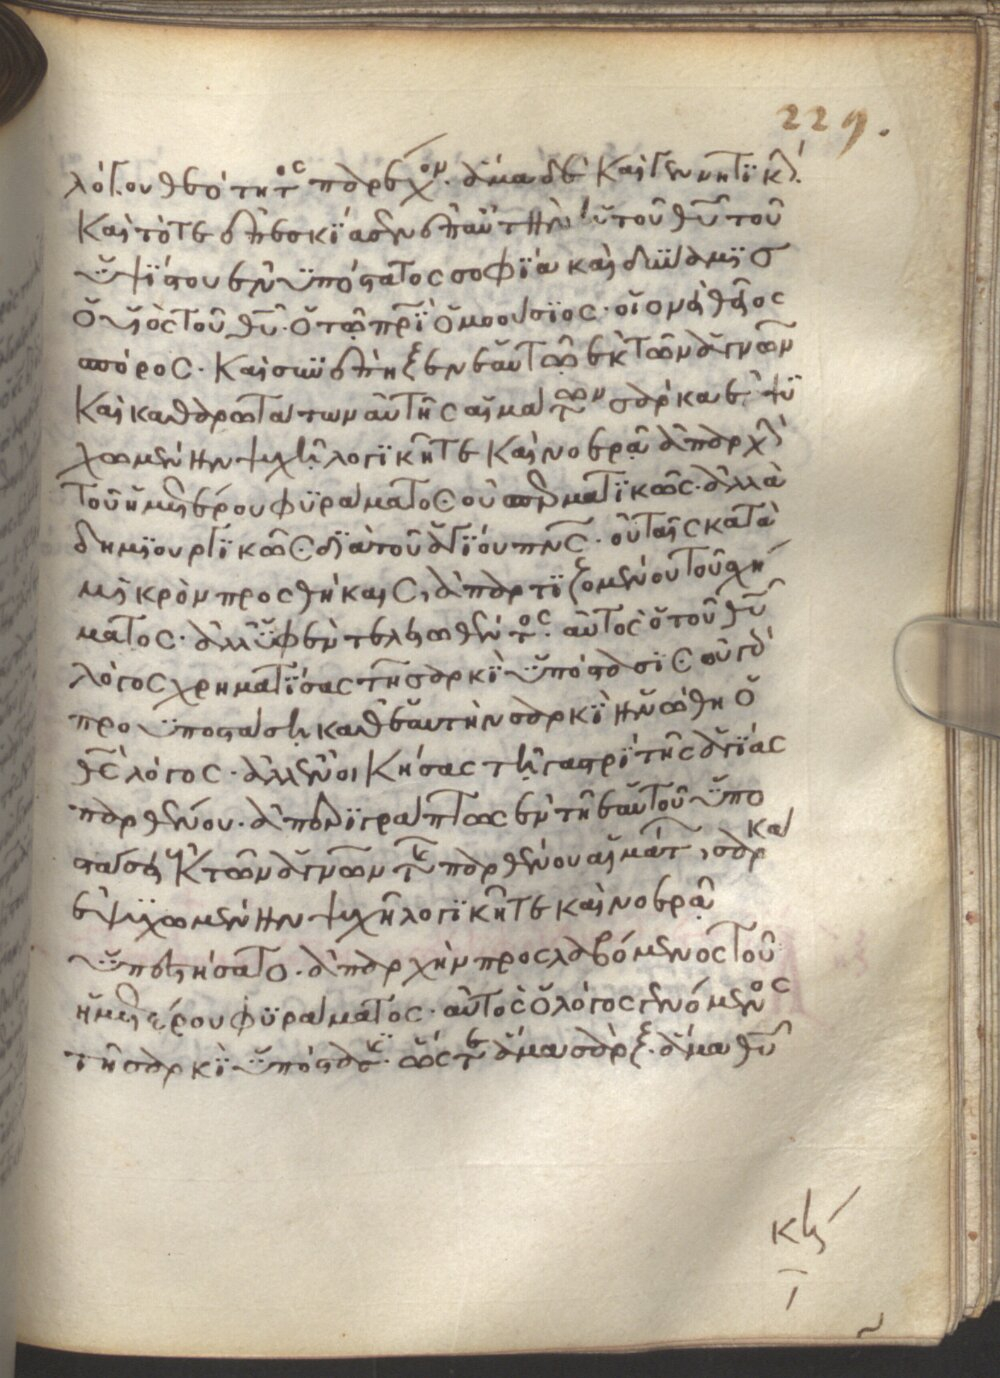 229.
λόγου θεότητος παρέχον. ἅμα δὲ καὶ γεννητικήν.
Καὶ τότε ἐπεσκίασεν ἐπ' αὐτὴν ἡ τοῦ θῦ τοῦ
ὑψίστου ἐνυπόστατος σοφία καὶ δύναμις
ὁ υἱὸς τοῦ θῦ. ὁ τῷ πρὶ ὁμοούσιος. οἱονεὶ θεῖος
σπόρος. Καὶ συνέπηξεν ἑαυτῷ ἐκ τῶν ἁγνῶν
Καὶ καθαρωτάτων αὐτῆς αἱμάτων σάρκα ἐψυ
χωμένην ψυχῇ λογικῇ τε καὶ νοερᾷ ἀπαρχὴν
τοῦ ἡμετέρου φυράματος οὐ σπερματικῶς. ἀλλὰ
δημιουργικῶς διὰ τοῦ ἁγίου πνς. οὐ ταῖς κατὰ
μικρὸν προσθήκαις, ἀπαρτιζομένου τοῦ σχή
ματος. ἀλλ' ὑφ' ἓν τελειωθέντος. αὐτὸς ὁ τοῦ θῦ
λόγος χρηματίσας τῇ σαρκὶ ὑπόστασις οὐ γὰρ
προϋποστάσῃ καθ' ἑαυτὴν σαρκὶ ἡνώθη ὁ
θς λόγος. ἀλλ' ἐνοικήσας τῇ γαστρὶ τῆς ἁγίας
παρθένου. ἀπεριγράπτως ἐν τῇ ἑαυτοῦ ὑπο
στάσει ἐκ τῶν ἁγνῶν τῆς παρθένου αἱμάτ, σάρκα
ἐψυχωμένην ψυχῇ λογικῇ τε καὶ νοερᾷ
ὑπεστήσατο. ἀπαρχὴν προσλαβόμενος τοῦ
ἡμετέρου φυράματος. αὐτὸς ὁ λόγος γενόμενος
τῇ σαρκὶ ὑπόστασις. ὥστε ἅμα σάρξ. ἅμα θῦ